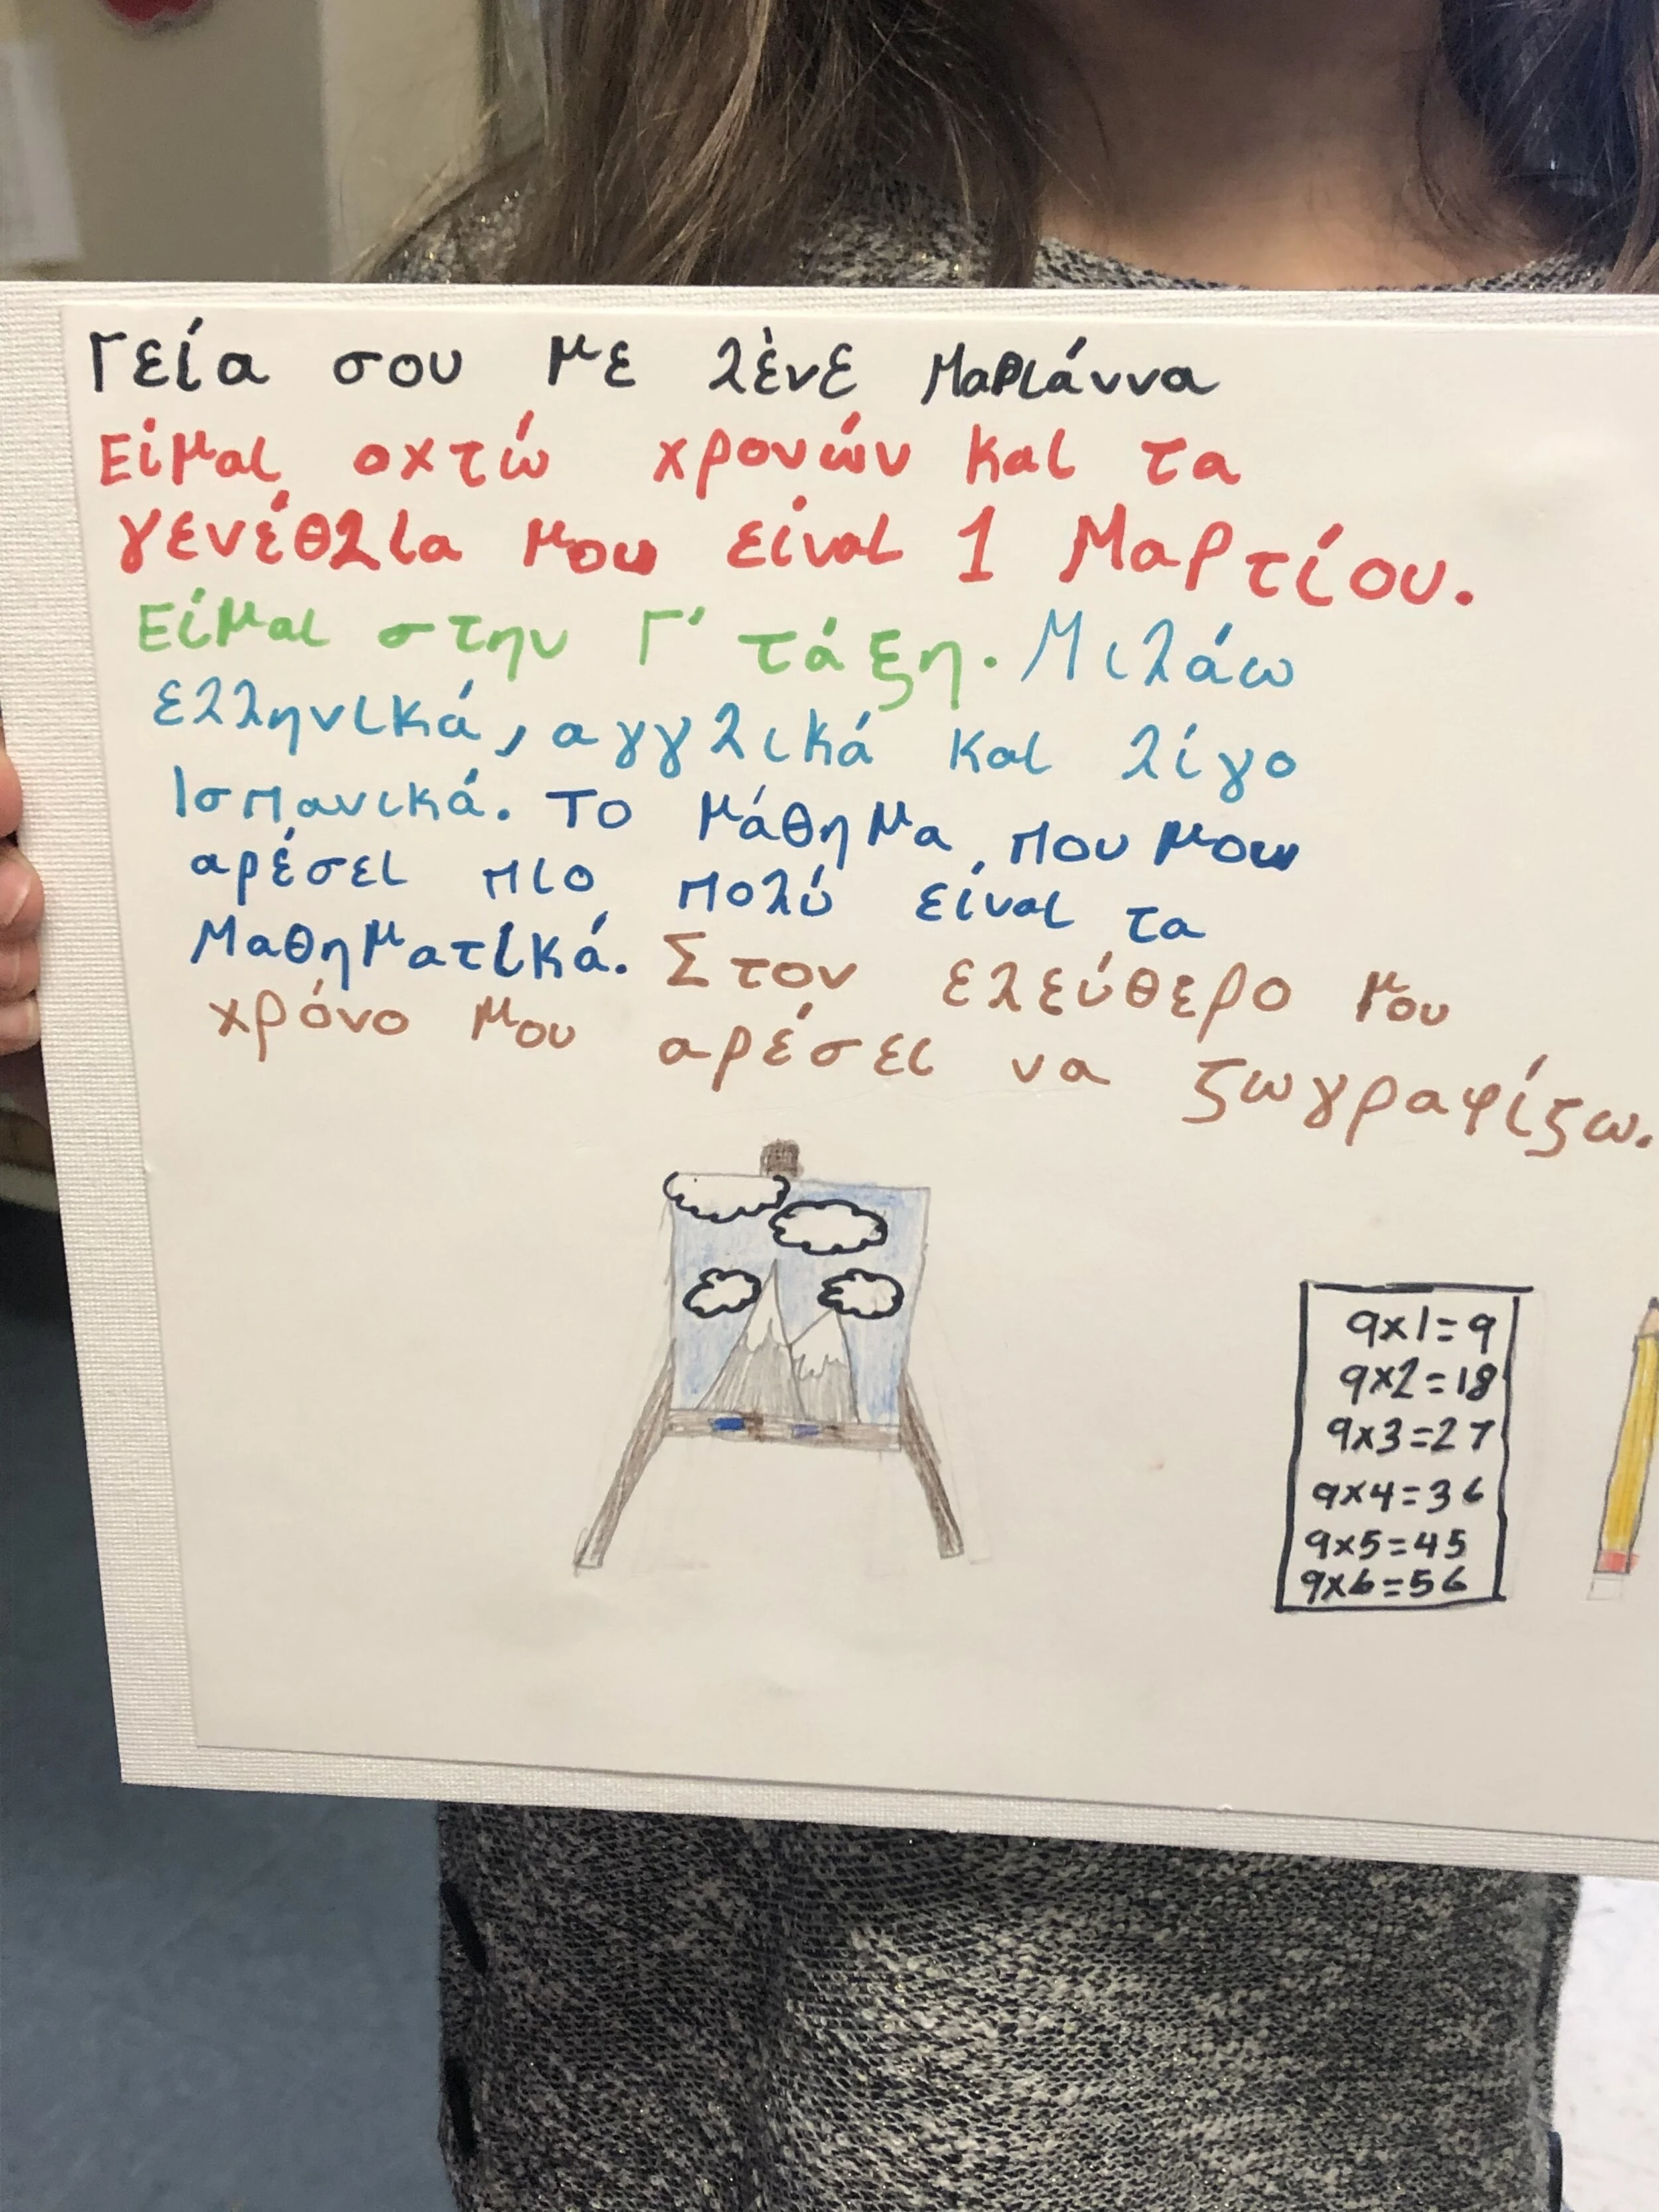 Γεία σου με λένε Μαριάννα
Είμαι οχτώ χρονών και τα
γενέθλια μου είναι 1 Μαρτίου.
Είμαι στην Γ' τάξη. Μιλάω
ελληνικά, αγγλικά και λίγο
Ισπανικά. Το μάθημα που μου
αρέσει πιο πολύ είναι τα
Μαθηματικά. Στον ελεύθερο μου
χρόνο μου αρέσει να ζωγραφίζω.
9x1=9
9x2=18
9x3=27
9x4=36
9x5=45
9x6=56